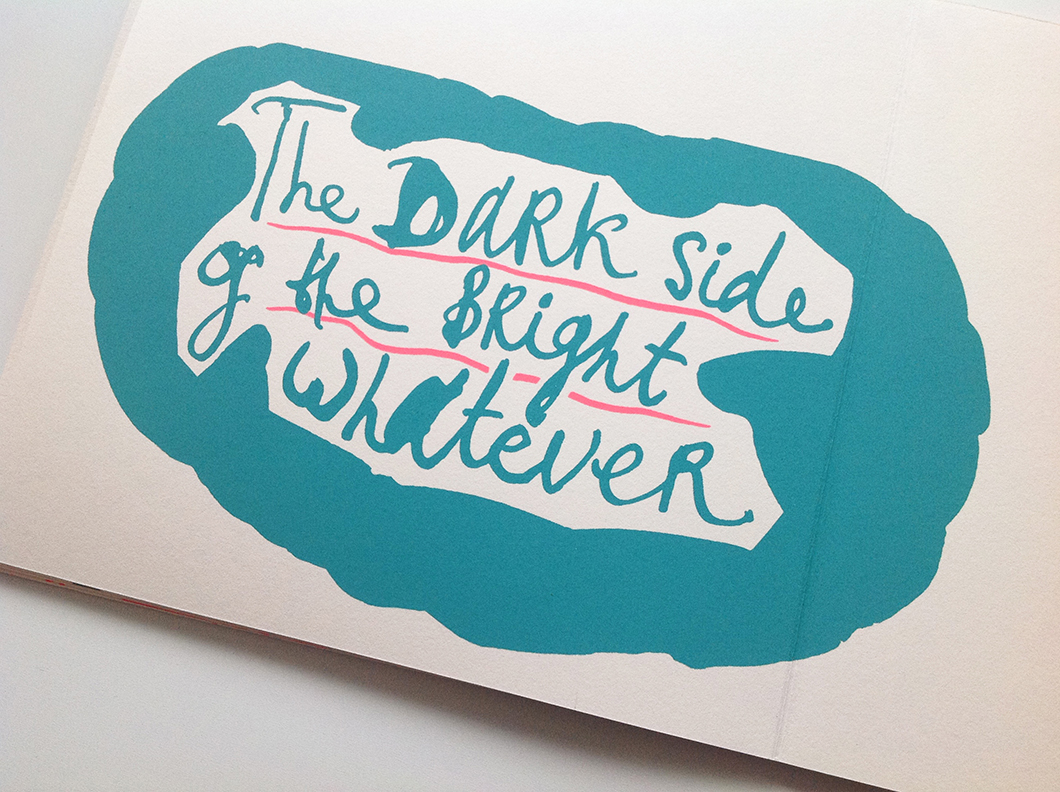 The DaRk side
of the BRight
whateveR